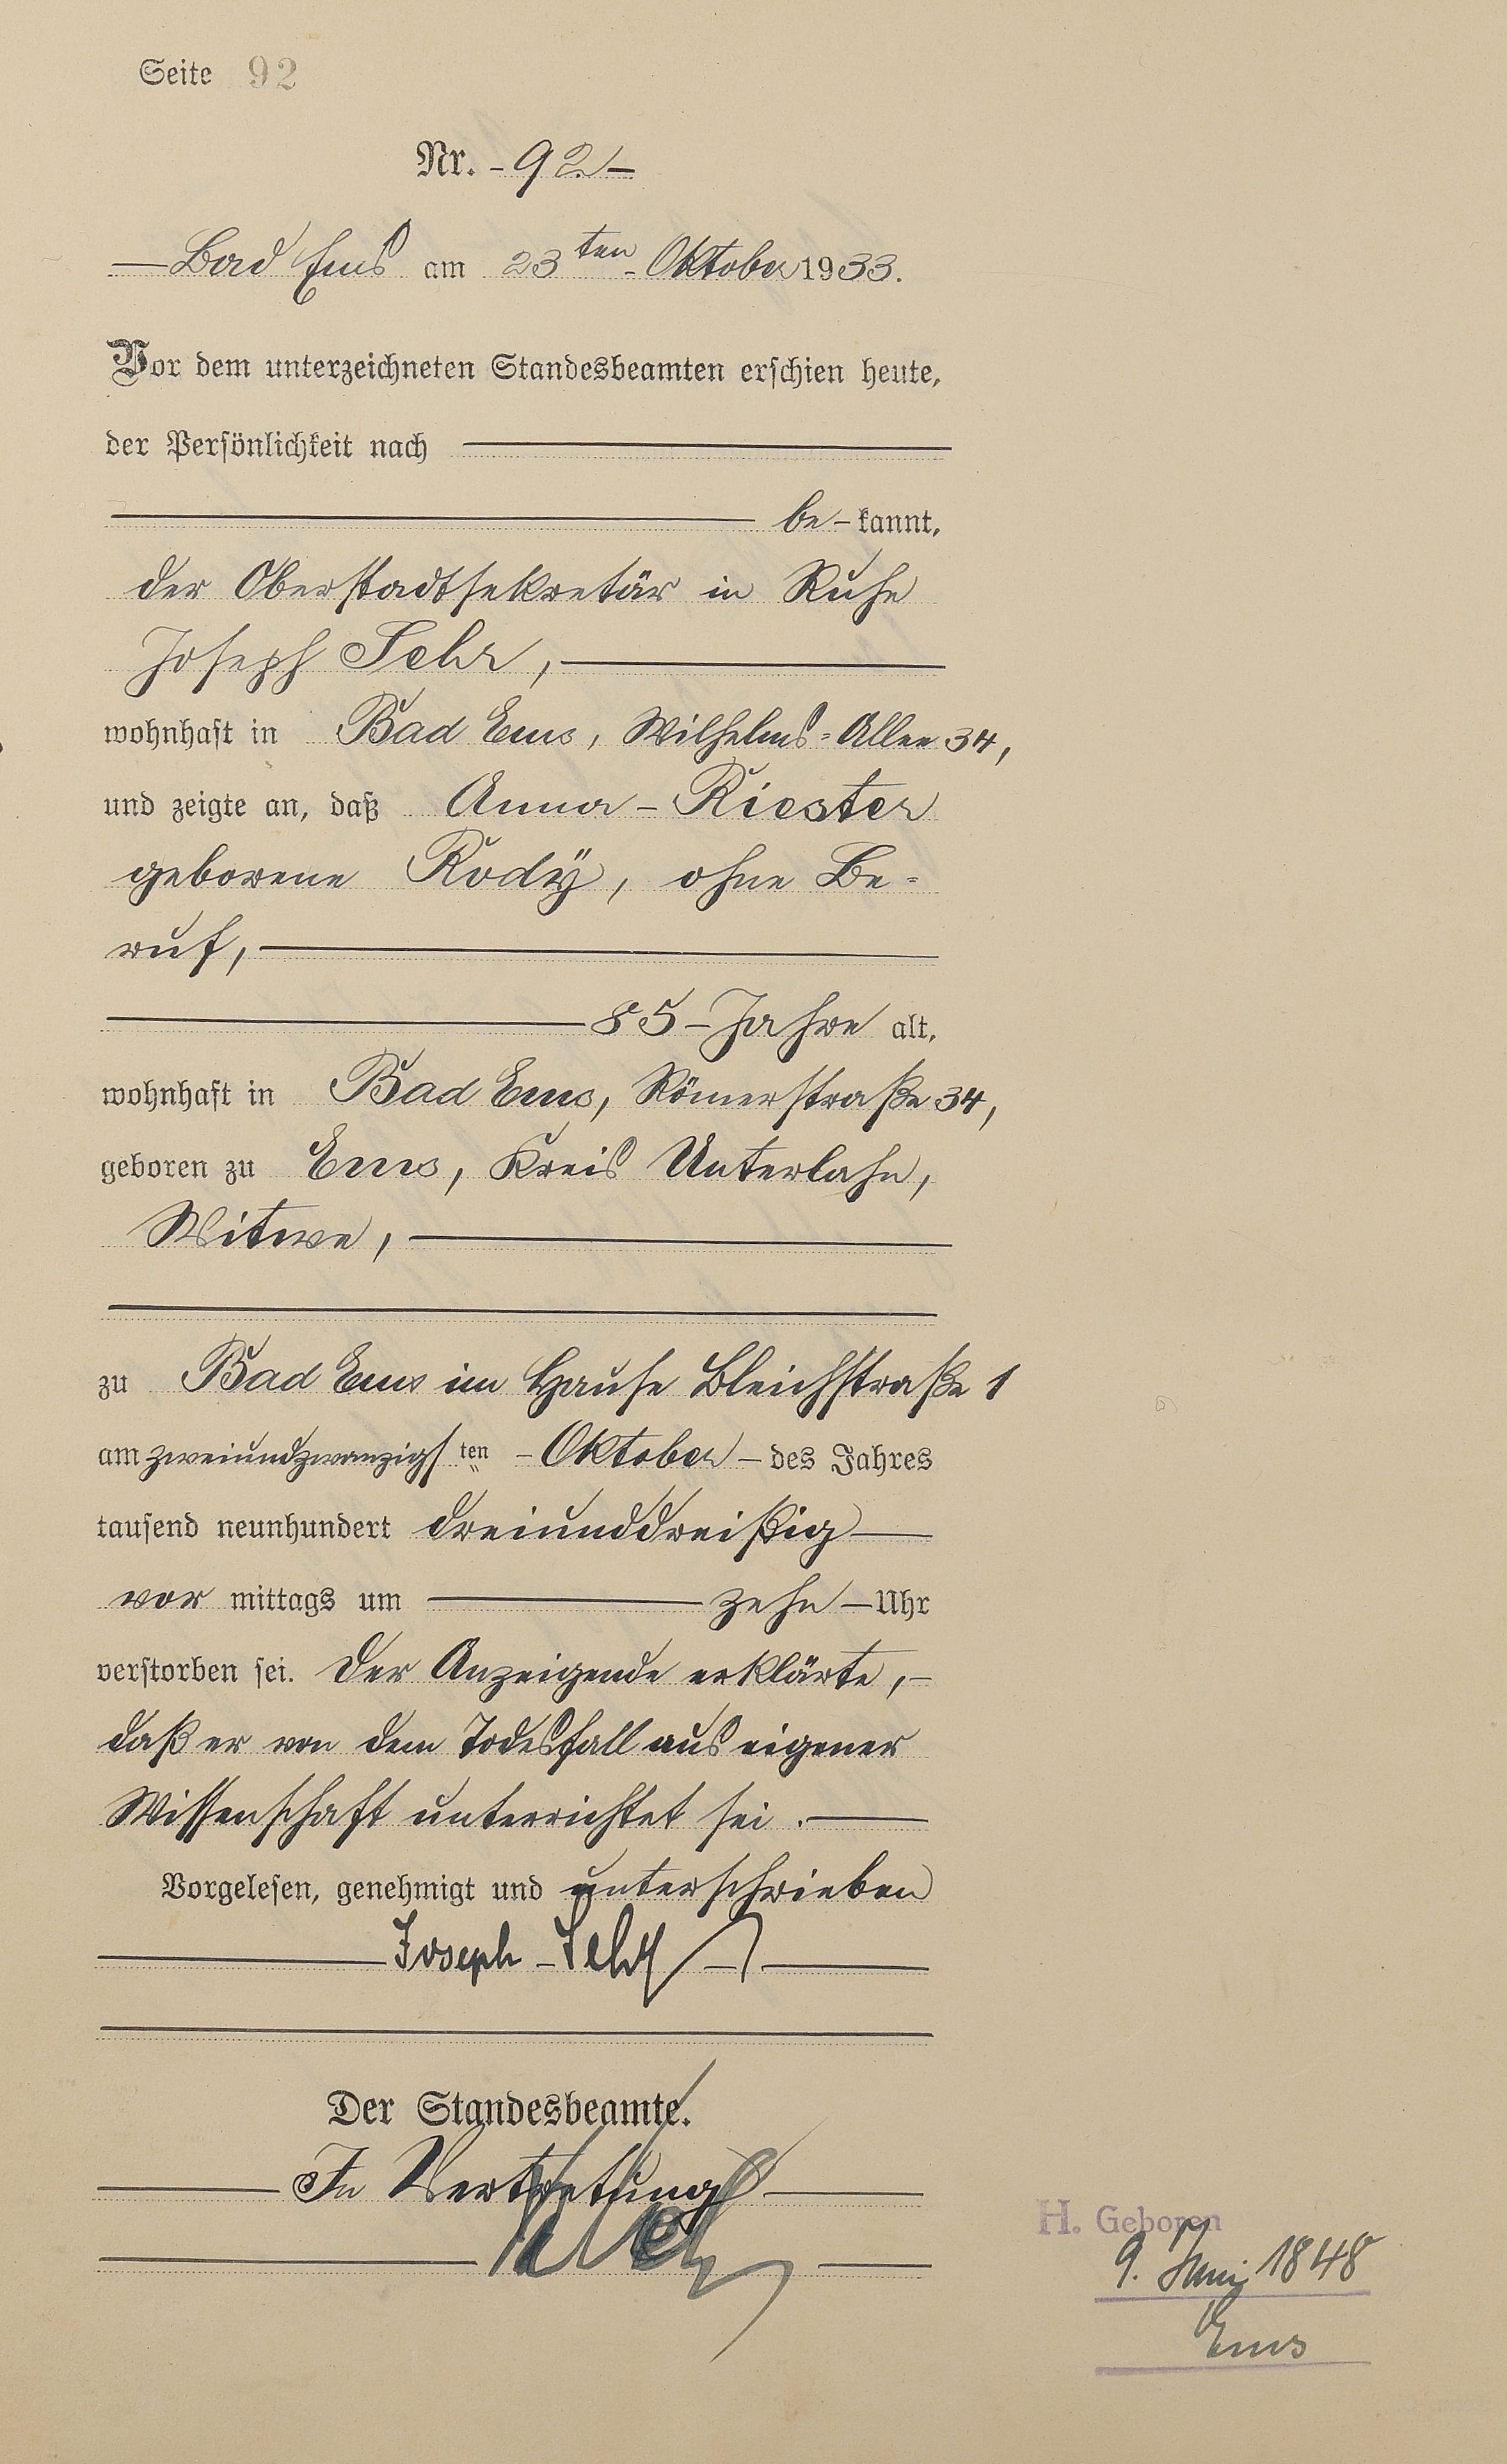 Seite 92
Nr. - 92 -
Bad Ems am 23ten Oktober 1933.
Vor dem unterzeichneten Standesbeamten erschien heute,
der Persönlichkeit nach
be-kannt,
der Oberstadtsekretär in Ruhe
Joseph Sehr,
wohnhaft in Bad Ems, Wilhelms-Allee 34,
und zeigte an, daß Anna - Riester
geborene Rody, ohne Be-
ruf,
85 - Jahre alt,
wohnhaft in Bad Ems, Römerstraße 34,
geboren zu Ems, Kreis Unterlahn,
Witwe,
zu Bad Ems im Hause Bleichstraße 1
am zweiundzwanzigsten - Oktober - des Jahres
tausend neunhundert dreiunddreißig
vor mittags um zehn - Uhr
verstorben sei. Der Anzeigende erklärte, -
daß er von dem Todesfall aus eigener
Wissenschaft unterrichtet sei.
Vorgelesen, genehmigt und unterschrieben
Joseph - Sehr
Der Standesbeamte.
In Vertretung
H. Geboren
9. Juni 1848
Ems